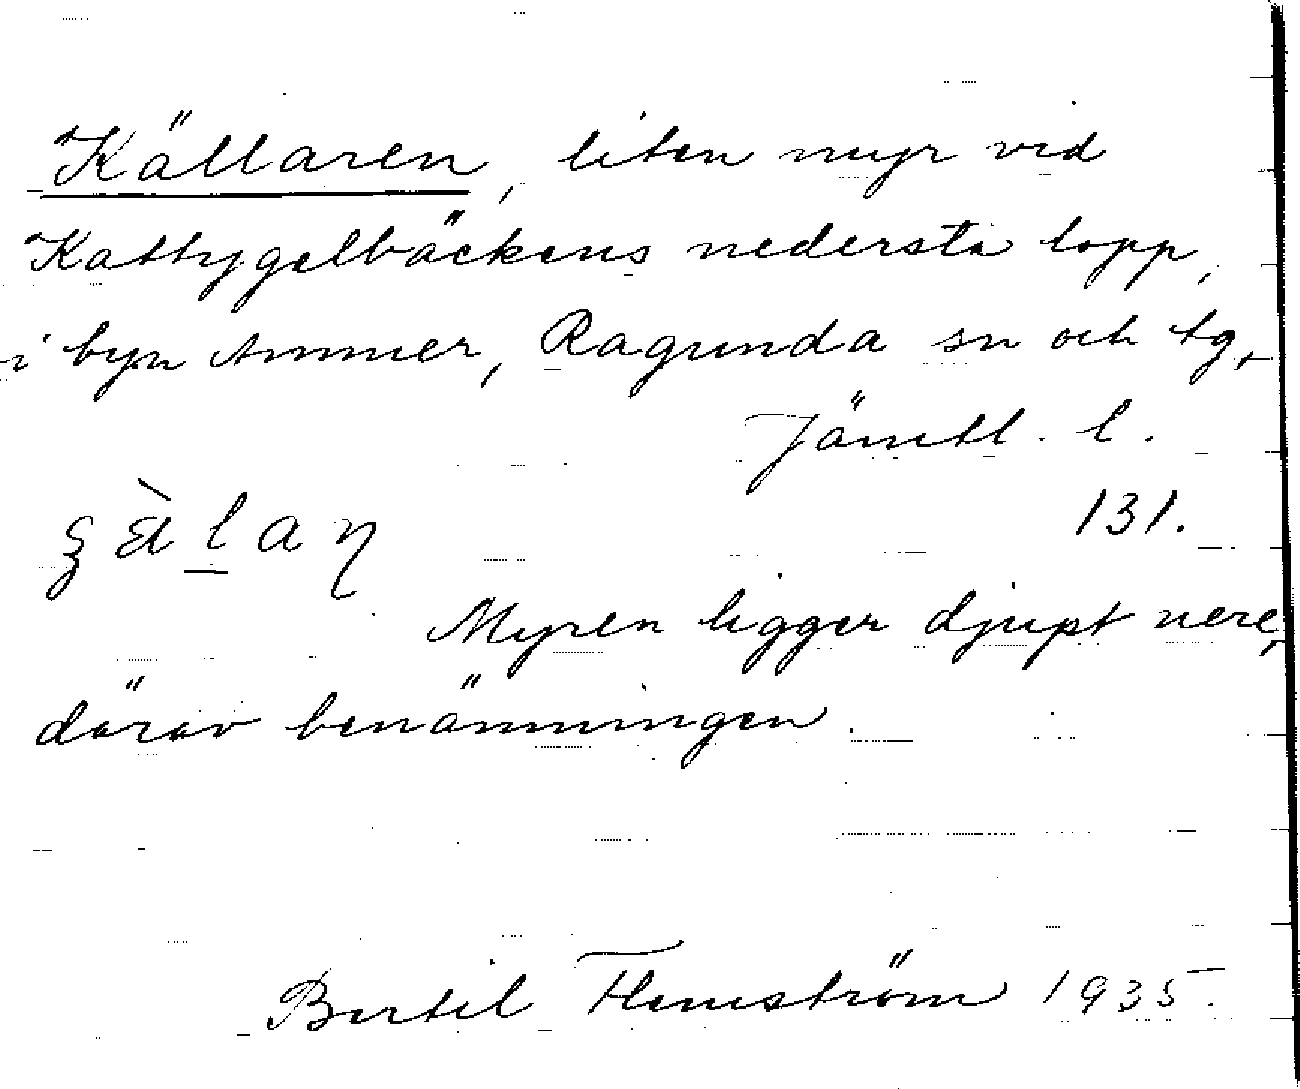 Källaren, liten myr vid
Kattygelbäckens nedersta lopp,
i byn Ammer, Ragunda sn och tg,
Jämtl. l.
131.
Myren ligger djupt nere,
därav benämningen.
Bertil Flemström 1935.